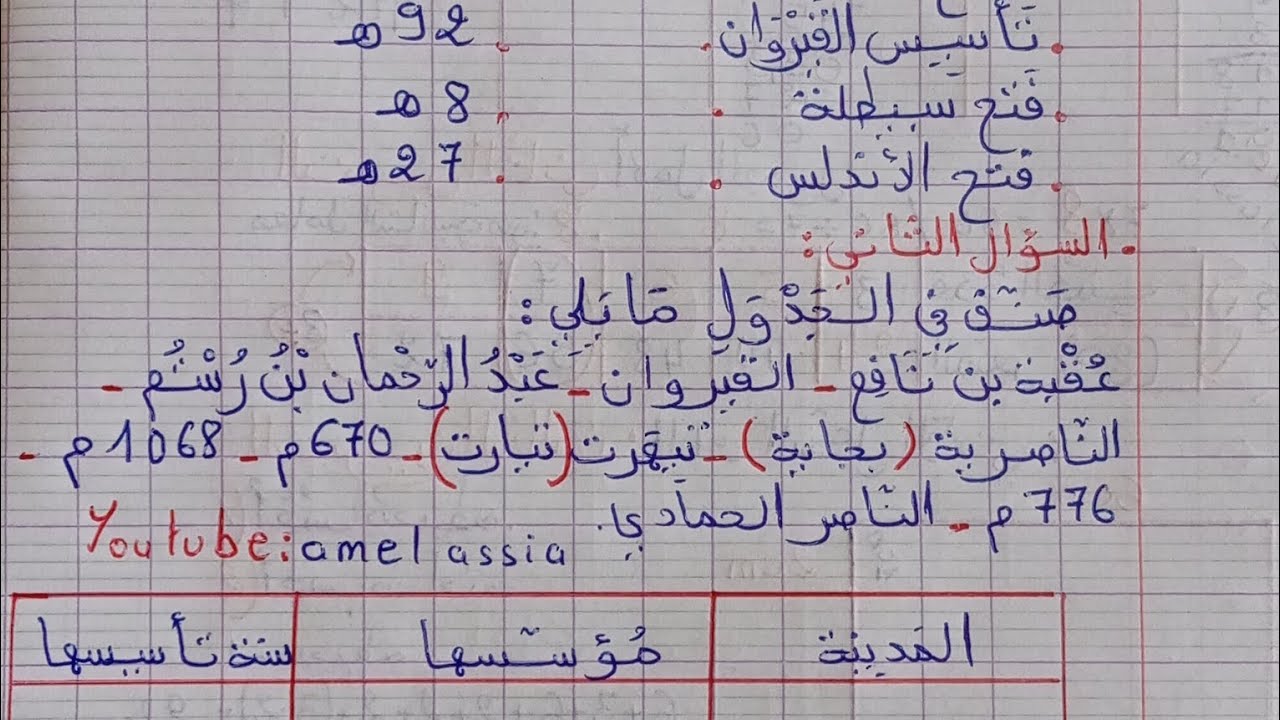 . تَأْسِيس القَيْرَوَان . . 92 هـ
. فَتح سبيطلة . . 8 هـ
. فتح الأندلس . . 27 هـ
. السؤال الثاني :
صَنّف فِي الجَدْوَلِ مَا يَلِي :
عُقْبة بن نَافِع - القيروان - عَبْدُ الرّحْمان بْنُ رُسْتُم -
النّاصرية (بجاية) - تيهرت (تيارت) - 670م - 1068م -
776م - النّاصر الحمادي.
Youtube: amel assia
المَدينة مُؤسّسها سنة تأسيسها